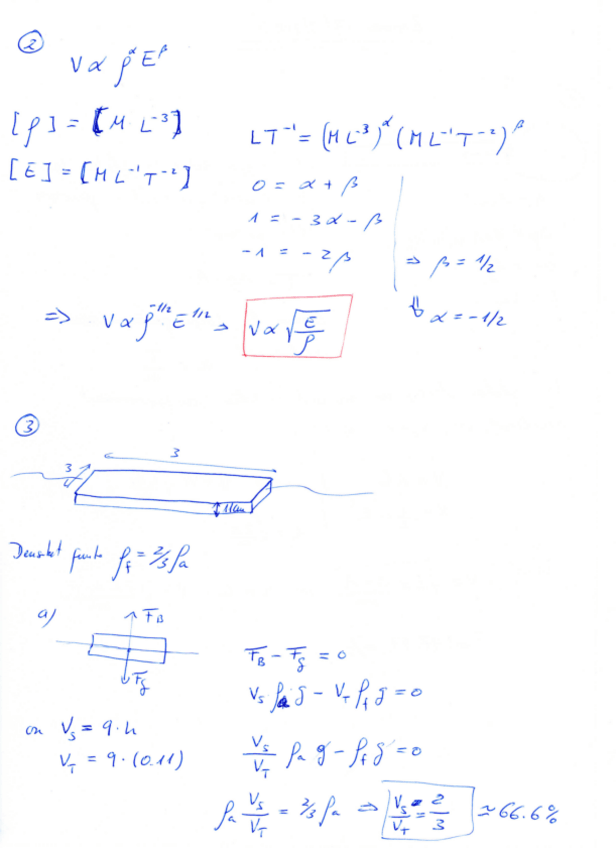 ②
V ∝ ρ^α E^β
[ρ] = [M L^-3]
[E] = [M L^-1 T^-2]
L T^-1 = (M L^-3)^α (M L^-1 T^-2)^β
0 = α + β
1 = -3α - β
-1 = -2β ⇒ β = 1/2
⇓ α = -1/2
⇒ V ∝ ρ^-1/2 E^1/2 → V ∝ √(E/ρ)
③
3
3
11cm
Densitat fusta ρ_f = 2/3 ρ_a
a)
F_B
F_g
F_B - F_g = 0
V_s ρ_a g - V_T ρ_f g = 0
on V_s = 9·h
V_T = 9·(0.11)
V_s/V_T ρ_a g - ρ_f g = 0
ρ_a V_s/V_T = 2/3 ρ_a ⇒ V_s/V_T = 2/3 ≃ 66.6%